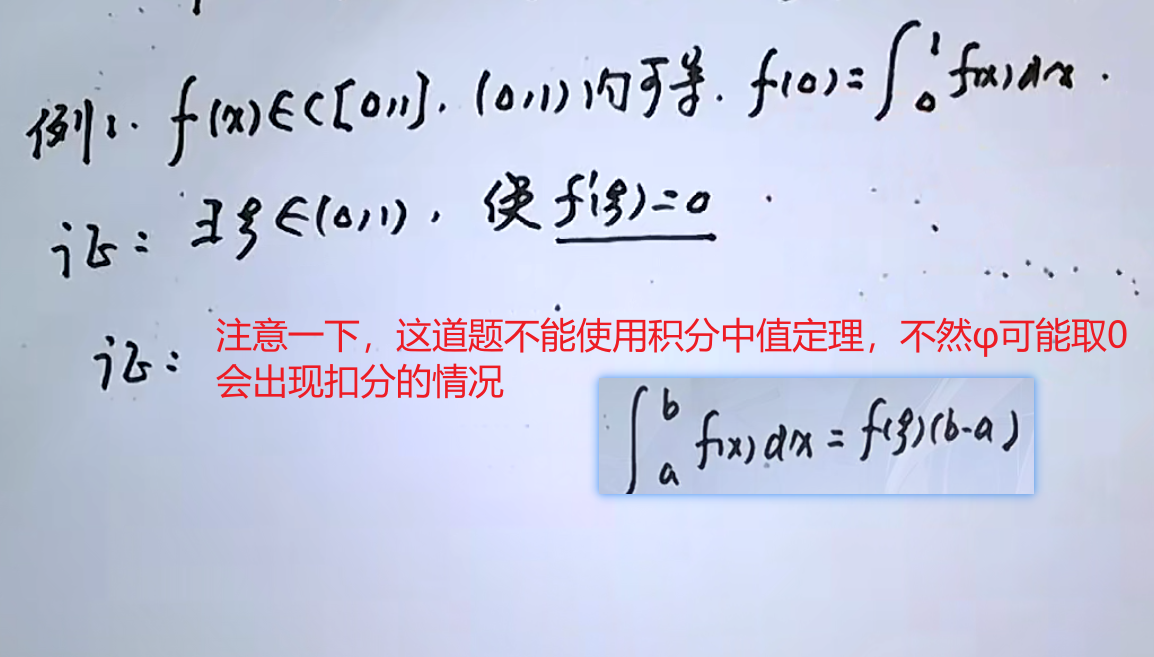 例1. f(x)∈C[0,1], (0,1)内可导, f(0)=∫₀¹f(x)dx.
证: ∃ξ∈(0,1), 使f'(ξ)=0
证:
注意一下，这道题不能使用积分中值定理，不然φ可能取0
会出现扣分的情况
∫ₐᵇ f(x)dx = f(ξ)(b-a)